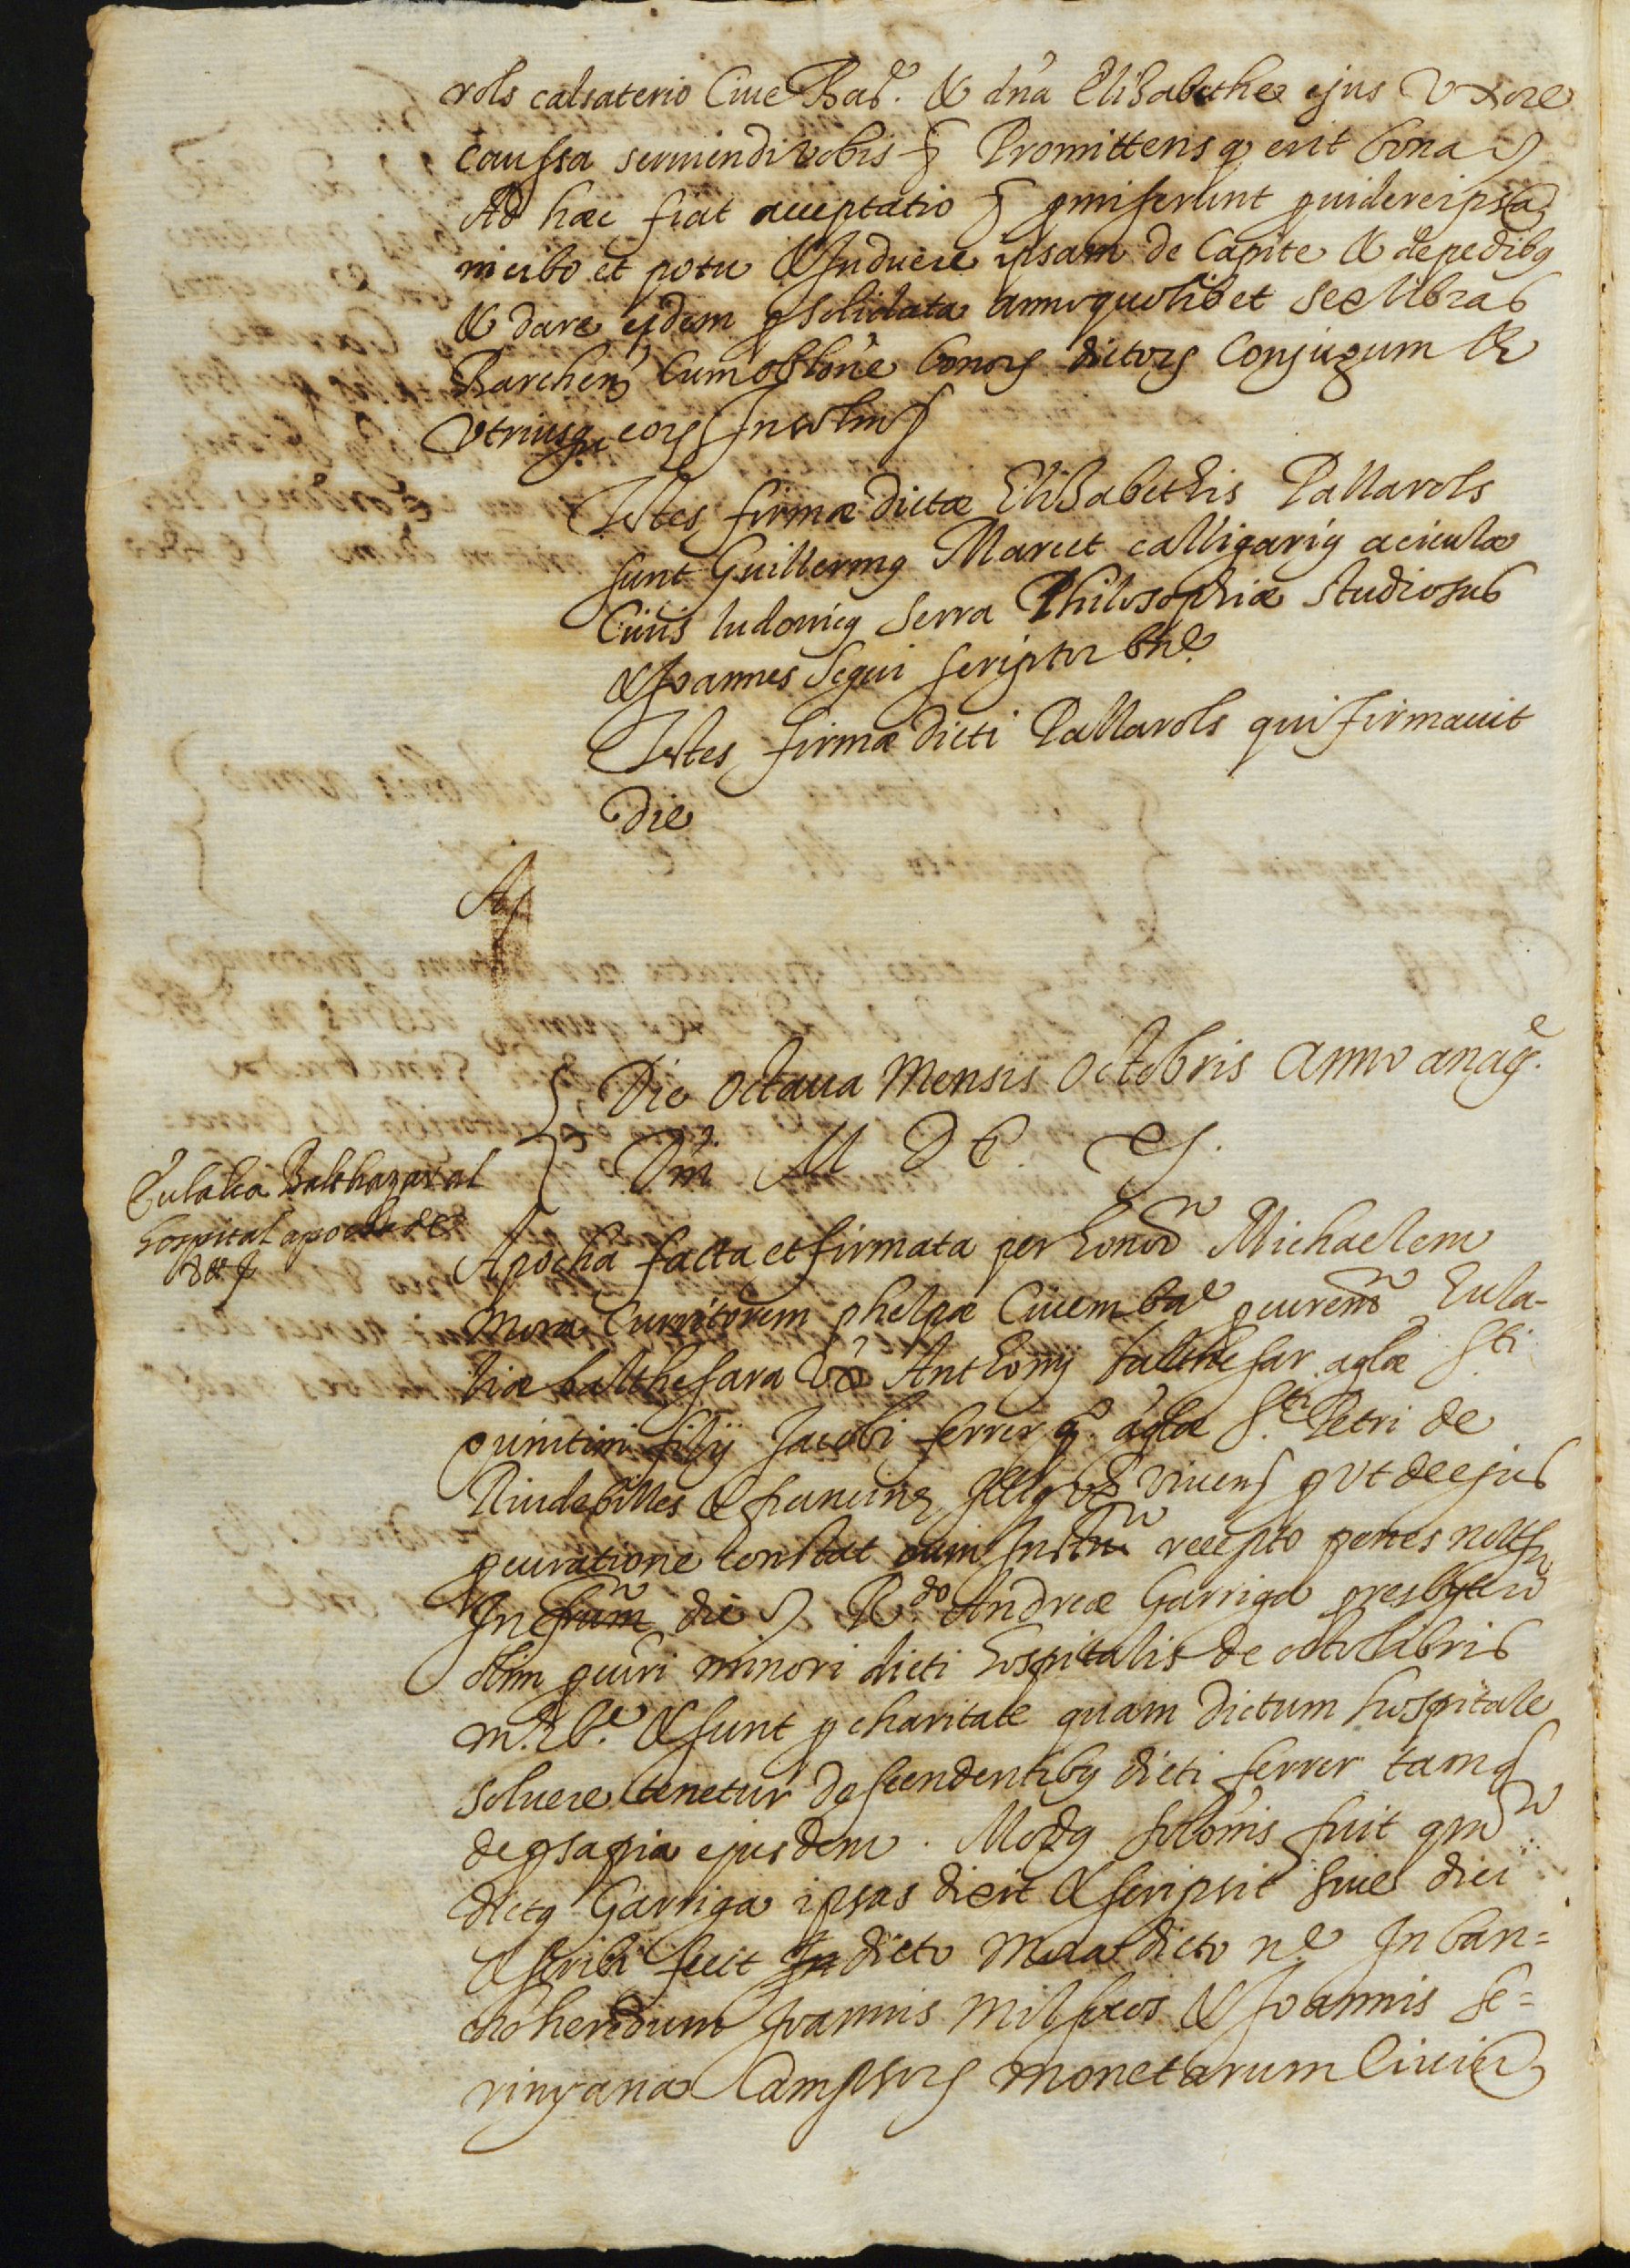 rols calsaterio Ciue Bar.e & dna Elisabethe ejus Vxore
caussa seruiendi vobis § Promittens q erit bona §
Ad hæc fiat acceptatio § pmiserunt puidere ipsa
in cibo et potu & Induere ipsam de Capite & de pedibq
& dare ejdem p solidata anno quolibet sex libras
Barchen. Cum oblone bonoꝝ dictoꝝ Conjugum &
Vtriusque eoꝝ Insolm §
Testes firmæ dictæ Elisabethis Pallarols
sunt Guillermq Maruet calligariq aciculæ
Ciuis ludouicq Serra Philosophiæ studiosus
& Joannes Segui scriptor bne
Testes firmæ dicti Pallarols qui firmauit
die
Ap
Die octaua Mensis octobris Anno a na.te
Dni M D C
Eulalia Balthazar al
hospital apocha de
Apocha facta et firmata per honor Michaelem
Mora Curritorem phelpæ Ciuem bare pcurem Eula-
liæ balthesara Vx Anthonij balthesar aglæ Sti
quintini filij Jacobi ferrer q. aglæ S.ti Petri de
Riudebilles & francinæ viuens put de ejus
pcuratione constat Instru recepto penes nott
Infrum die § R.do Andreæ Garriga presbytero
olim pcuri minori dicti hospitalis de octo libris
m. Be. & sunt p charitate quam dictum hospitale
soluere tenetur descendentibq dicti ferrer tamq
de psapia ejusdem. Modq solonis fuit qm
dictq Garriga ipsas dixit & scripsit siue dici
& scribi fecit dicto Mora dicto ne In ban=
cho heredum Joannis Milsocos & Joannis Se=
rinyana Campsoꝝ monetarum Ciuiu